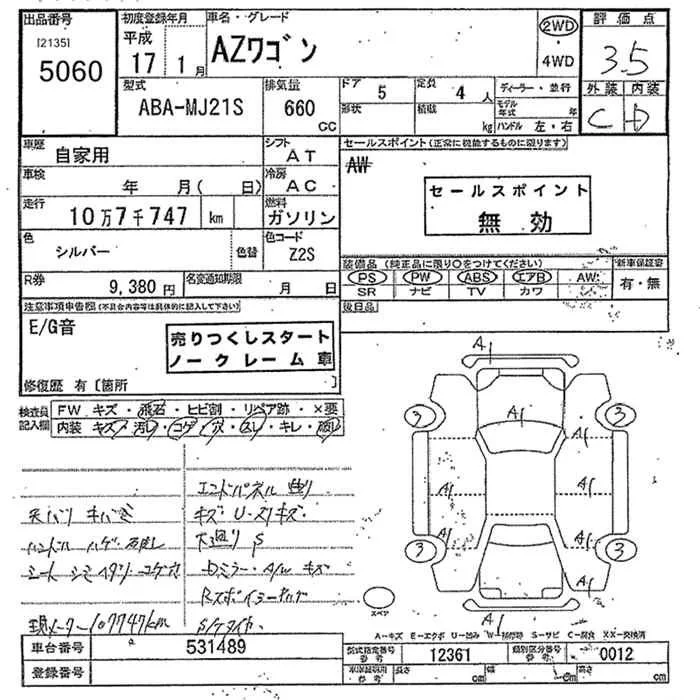 出品番号 初度登録年月 車名・グレード 2WD 評価点
[2135] 平成 AZワゴン 3.5
5060 17 1月 4WD 外装 内装
型式 排気量 ドア 5 定員 4人 ディーラー・並行 C D
ABA-MJ21S 660 CC 形状 積載 kg モデル年式 年
ハンドル 左・右
車歴 自家用 シフト AT セールスポイント(正常に機能するものに限ります)
車検 年 月( 日) 冷房 AC AW
セールスポイント
無効
走行 10万7千747 km 燃料 ガソリン
色 シルバー 色替 色コード Z2S
装備品 (純正品に限り○をつけてください) 新車保証書
PS PW ABS エアB AW 有・無
SR ナビ TV カワ
R券 9,380円 名変通知期限 月 日
後日品
注意事項申告欄(不具合内容等は具体的に記入して下さい)
E/G音
売りつくしスタート
ノークレーム車
修復歴 有〔箇所 〕
検査員記入欄
FW キズ・飛石・ヒビ割・リペア跡・×要
内装 キズ・汚レ・コゲ・穴・スレ・キレ・破レ
エンドパネル 曲り
キズ U・スリキズ
S
現メーター107747km
A1
A1
3 3
A1
A1 A1
A1 A1
3 3
A1
スペア
A-キズ E-エクボ U-凹み W-補修跡 S-サビ C-腐食 XX-交換済
車台番号 531489 型式指定番号 参考 12361 類別区分番号 参考 0012
登録番号 車庫証明用 参考 長さ cm 幅 cm 高さ cm